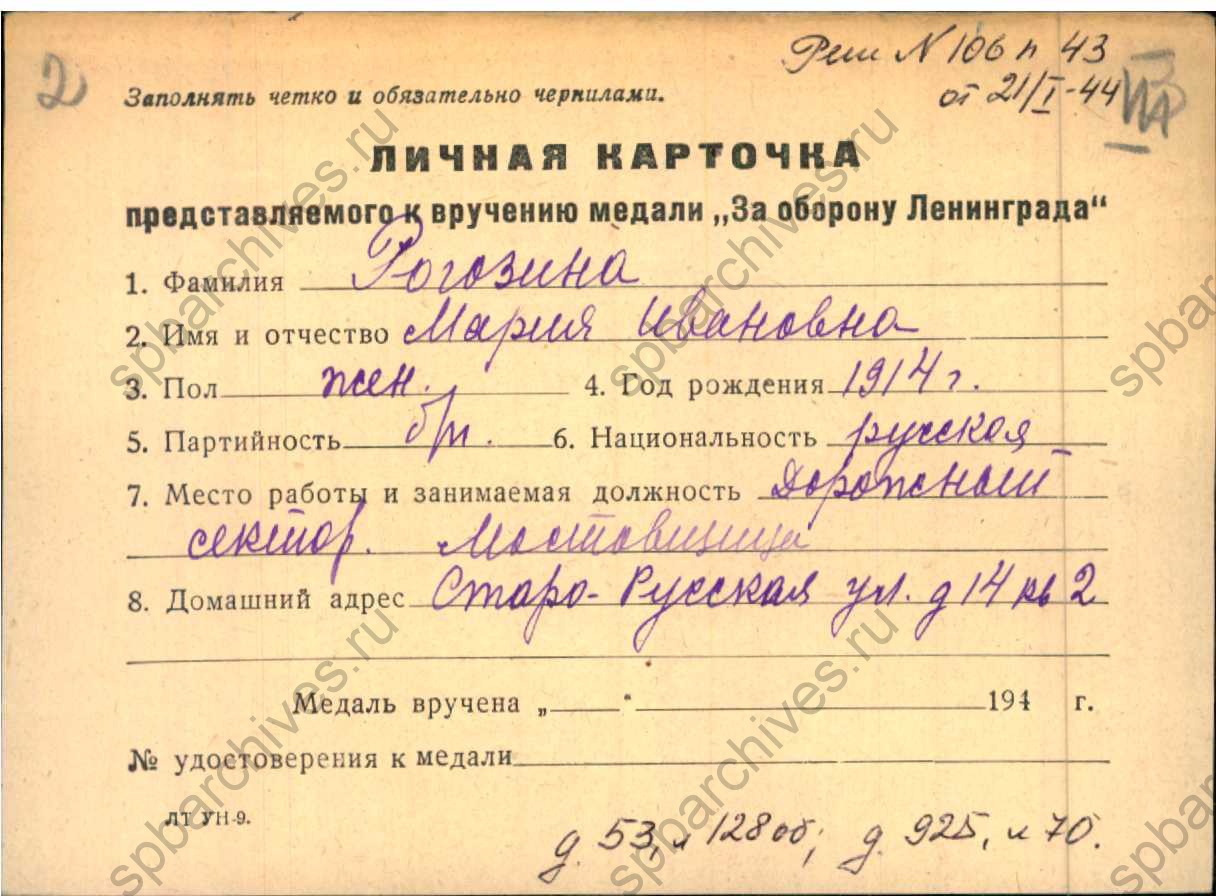 Реш N 106 п 43
2
Заполнять четко и обязательно чернилами.
от 21/I-44
ЛИЧНАЯ КАРТОЧКА
представляемого к вручению медали „За оборону Ленинграда“
1. Фамилия Рогозина
2. Имя и отчество Мария Ивановна
3. Пол жен. 4. Год рождения 1914 г.
5. Партийность б/п. 6. Национальность русская
7. Место работы и занимаемая должность Дорожный
сектор. Мостовщица
8. Домашний адрес Старо-Русская ул. д 14 кв 2
Медаль вручена „ “ 194 г.
№ удостоверения к медали
ЛТ УН-9.
д. 53, л 128 об; д. 925, л 70.
spbarchives.ru